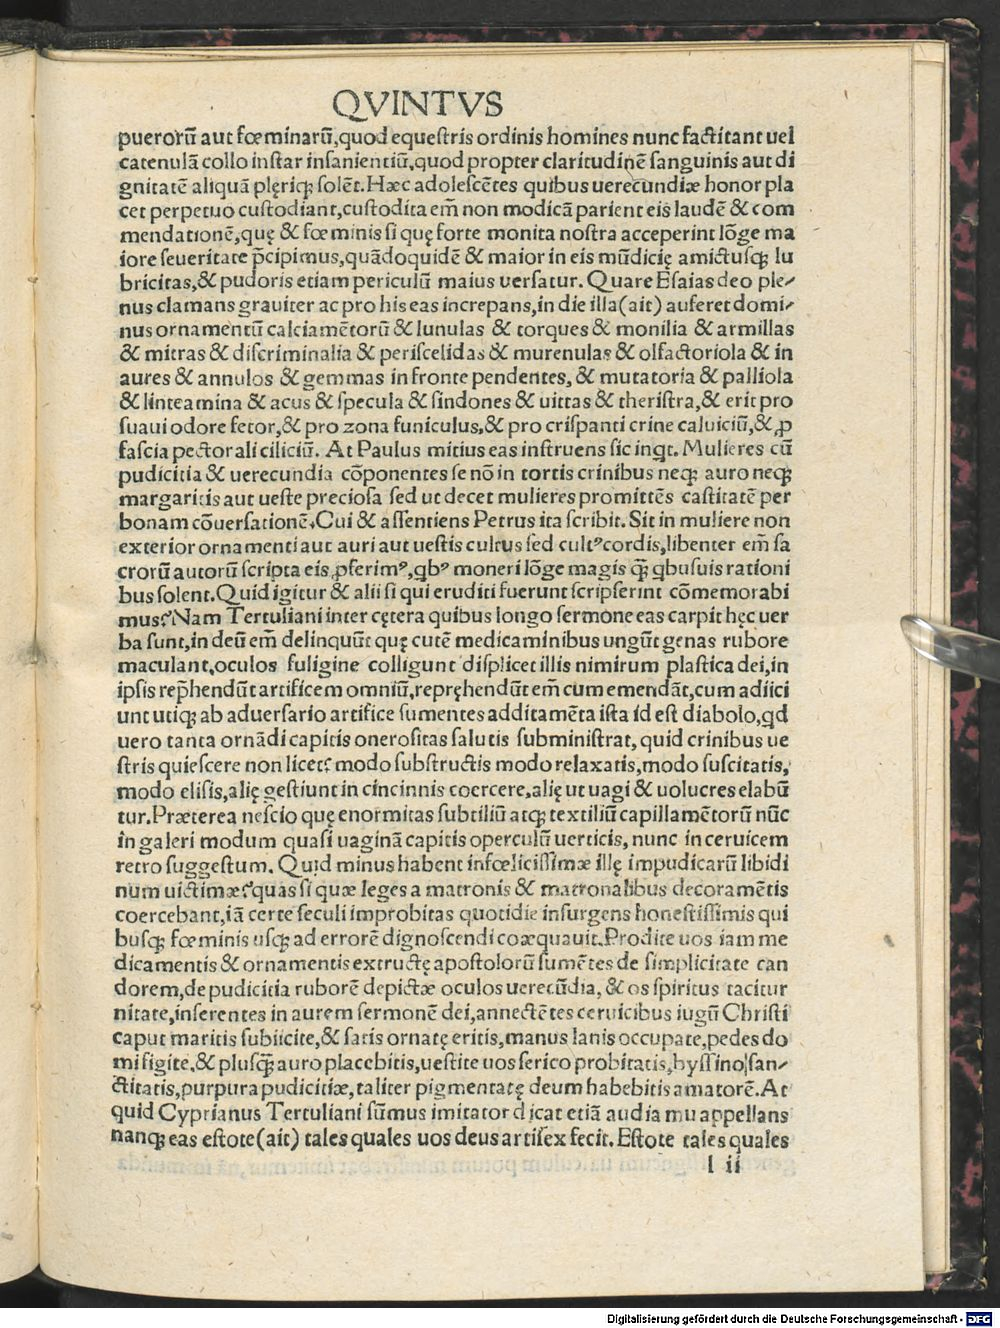 QVINTVS
puerorũ aut fœminarũ,quod equeſtris ordinis homines nunc factitant uel
catenulã collo inſtar inſanientiũ,quod propter claritudinẽ ſanguinis aut di
gnitatẽ aliquã plęriqꝫ ſolẽt.Hæc adoleſcẽtes quibus uerecundiæ honor pla
cet perpetuo cuſtodiant,cuſtodita em̃ non modicã parient eis laudẽ & com
mendationẽ,quę & fœminis ſi quę forte monita noſtra acceperint lõge ma
iore ſeueritate p̃cipimus,quãdoquidẽ & maior in eis mũdicię amictuſqꝫ lu
bricitas,& pudoris etiam periculũ maius uerſatur. Quare Eſaias deo ple⸗
nus clamans grauiter ac pro his eas increpans,in die illa(ait) auferet domi⸗
nus ornamentũ calciamẽtorũ & lunulas & torques & monilia & armillas
& mitras & diſcriminalia & periſcelidas & murenulas & olfactoriola & in
aures & annulos & gemmas in fronte pendentes, & mutatoria & palliola
& linteamina & acus & ſpecula & ſindones & uittas & theriſtra,& erit pro
ſuaui odore fetor,& pro zona funiculus,& pro criſpanti crine caluiciũ,& ꝓ
faſcia pectorali ciliciũ. At Paulus mitius eas inſtruens ſic inqt. Mulieres cũ
pudicitia & uerecundia cõponentes ſe nõ in tortis crinibus neqꝫ auro neqꝫ
margaritis aut ueſte precioſa ſed ut decet mulieres promittẽs caſtitatẽ per
bonam cõuerſationẽ.Cui & aſſentiens Petrus ita ſcribit. Sit in muliere non
exterior ornamenti aut auri aut ueſtis cultus ſed cultꝰ cordis,libenter em̃ ſa
crorũ autorũ ſcripta eis ꝓferimꝰ,qbꝰ moneri lõge magis q̃ꝫ qbuſuis rationi
bus ſolent.Quid igitur & alii ſi qui eruditi fuerunt ſcripſerint cõmemorabi
mus?Nam Tertuliani inter cętera quibus longo ſermone eas carpit hęc uer
ba ſunt,in deũ em̃ delinquũt quę cutẽ medicaminibus ungũt genas rubore
maculant,oculos fuligine colligunt diſplicet illis nimirum plaſtica dei,in
ipſis rep̃hendũt artificem omniũ,repręhendũt em̃ cum emendãt,cum adiici
unt utiqꝫ ab aduerſario artifice ſumentes additamẽta iſta id eſt diabolo,qd
uero tanta ornãdi capitis oneroſitas ſalutis ſubminiſtrat, quid crinibus ue
ſtris quieſcere non licet? modo ſubſtructis modo relaxatis,modo ſuſcitatis,
modo eliſis,alię geſtiunt in cincinnis coercere,alię ut uagi & uolucres elabũ
tur.Præterea neſcio quę enormitas ſubtiliũ atqꝫ textiliũ capillamẽtorũ nũc
in galeri modum quaſi uaginã capitis operculũ uerticis, nunc in ceruicem
retro ſuggeſtum. Quid minus habent infœliciſſimæ illę impudicarũ libidi
num uictimæ?quas ſi quæ leges a matronis & matronalibus decoramẽtis
coercebant,iã certe ſeculi improbitas quotidie inſurgens honeſtiſſimis qui
buſqꝫ fœminis uſqꝫ ad errorẽ dignoſcendi coæquauit.Prodite uos iam me
dicamentis & ornamentis extructę apoſtolorũ ſumẽtes de ſimplicitate can
dorem,de pudicitia ruborẽ depictæ oculos uerecũdia, & os ſpiritus tacitur
nitate,inſerentes in aurem ſermonẽ dei,annectẽtes ceruicibus iugũ Chriſti
caput maritis ſubiicite,& ſatis ornatę eritis,manus lanis occupate,pedes do
mi figite,& pluſq̃ꝫ auro placebitis,ueſtite uos ſerico probitatis,byſſino ſan⸗
ctitatis,purpura pudicitiæ,taliter pigmentatę deum habebitis amatorẽ.At
quid Cyprianus Tertuliani ſũmus imitator dicat etiã audiamu appellans
nanqꝫ eas eſtote(ait) tales quales uos deus artifex fecit. Eſtote tales quales
l ii
Digitalisierung gefördert durch die Deutsche Forschungsgemeinschaft - DFG